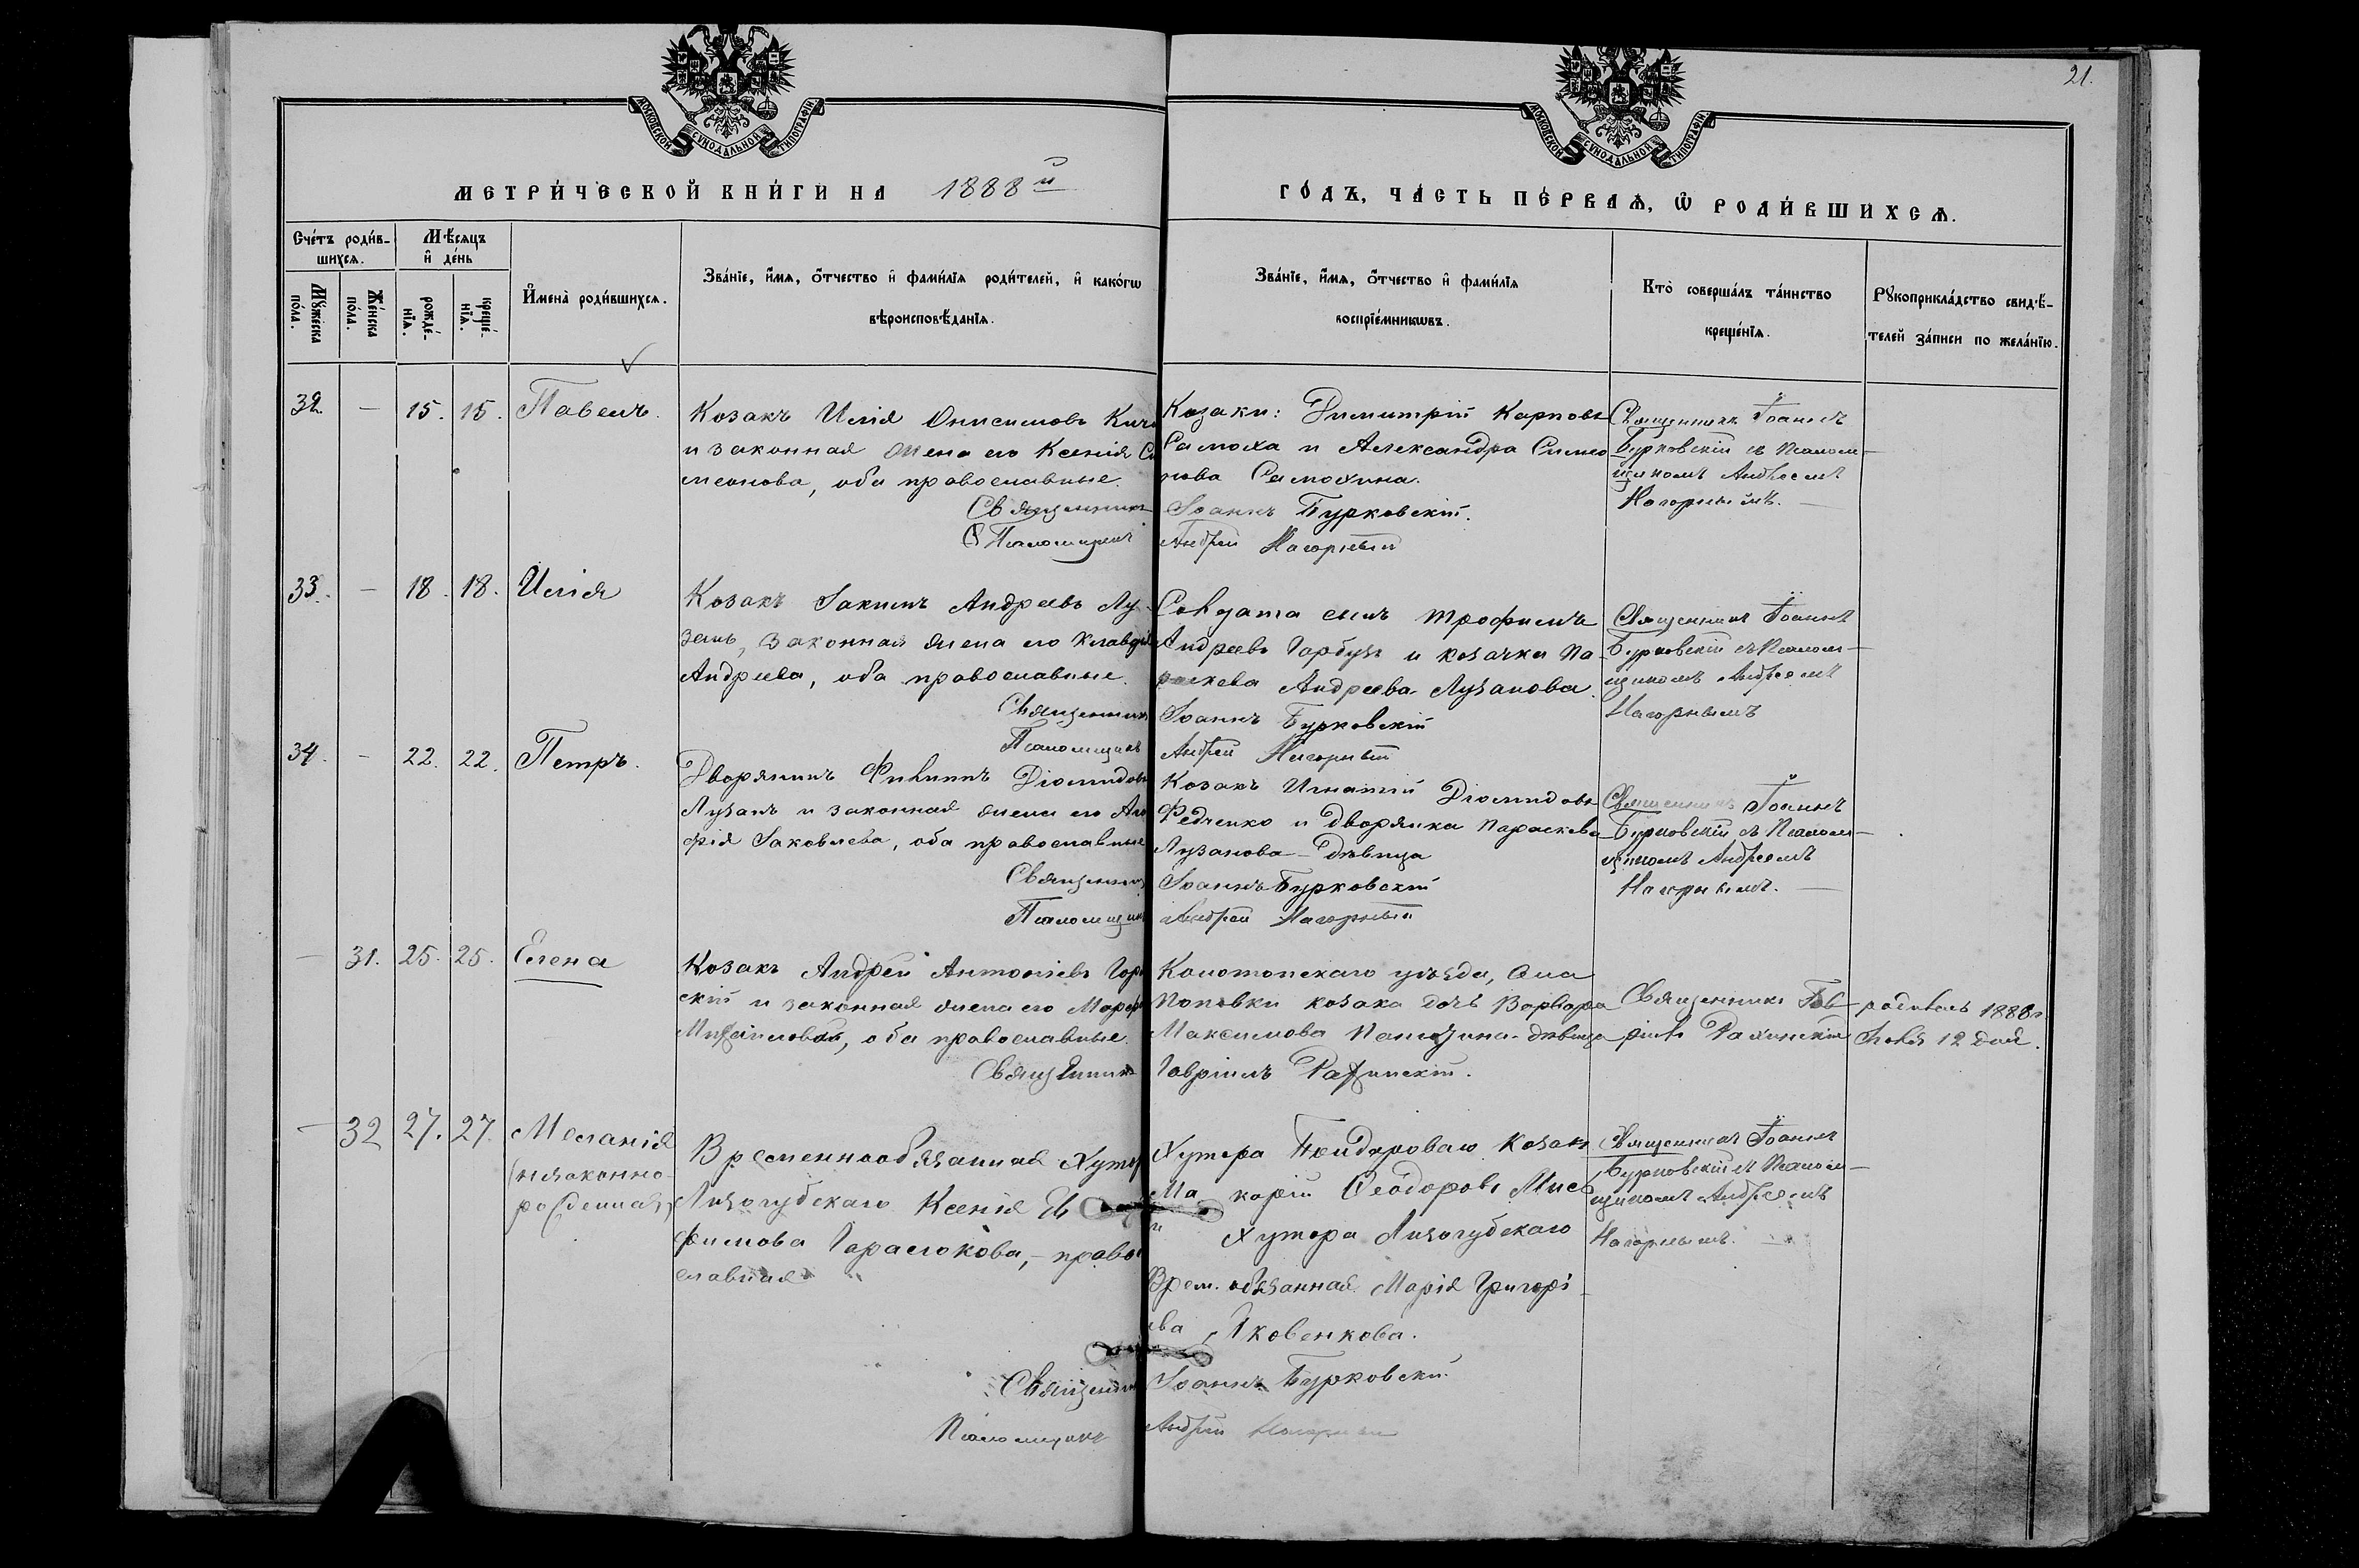 21.
МОСКОВСКОЙ СѴНОДАЛЬНОЙ ТИПОГРАФІИ
МОСКОВСКОЙ СѴНОДАЛЬНОЙ ТИПОГРАФІИ
МЕТРИ́ЧЕСКОЙ КНИ́ГИ НА 1888й
ГО́ДЪ, ЧА́СТЬ ПЕ́РВАѦ, Ѿ РОДИ́ВШИХСѦ.
Сче́тъ роди́в-
шихсѧ.
Мꙋ́жеска
по́ла.
Же́нска
по́ла.
Мѣ́сяцъ
и҆ де́нь
рожде́-
нїѧ.
креще́-
нїѧ.
И҆мена̀ роди́вшихсѧ.
Зва́нїе, и҆́мѧ, ѻ҆́тчество и҆ фами́лїѧ роди́телей, и҆ како́гѡ
вѣроисповѣ́данїѧ.
Зва́нїе, и҆́мѧ, ѻ҆́тчество и҆ фами́лїѧ
воспрїе́мникѡвъ.
Кто̀ соверша́лъ та́инство
креще́нїѧ.
Рꙋкоприкла́дство свидѣ́-
телей за́писи по жела́нїю.
32. — 15. 15. Павелъ.
Козакъ Илія Онисимовъ
и законная жена его Ксенія Си
меонова, оба православные.
Священникъ
Псаломщикъ
Козаки: Димитрій Карповъ
Самоха и Александра Симео
нова Самохина.
Іоаннъ Бурковскій.
Андрей Нагорный
Священникъ Іоаннъ
Бурковскій съ Псалом-
щикомъ Андреемъ
Нагорнымъ. —
33. — 18. 18. Илія
Козакъ Іакимъ Андреевъ Лу-
зань, законная жена его Клавдія
Андреева, оба православные.
Священникъ
Псаломщикъ
Солдата сынъ Трофимъ
Андреевъ Гарбузъ и козачка Па-
раскева Андреева Лузанова.
Іоаннъ Бурковскій
Андрей Нагорный
Священникъ Іоаннъ
Бурковскій съ Псалом-
щикомъ Андреемъ
Нагорнымъ
34. — 22. 22. Петръ.
Дворянинъ Филиппъ Діомидовъ
Лузанъ и законная жена его Ага
фія Іаковлева, оба православные
Священникъ
Псаломщикъ
Козакъ Игнатій Діомидовъ
Федченко и дворянка Параскева
Лузанова – дѣвица
Іоаннъ Бурковскій
Андрей Нагорный
Священникъ Іоаннъ
Бурковскій съ Псалом-
щикомъ Андреемъ
Нагорнымъ. —
— 31. 25. 25. Елена
Козакъ Андрей Антоніевъ
скій и законная жена его
Михаилова, оба православные.
Священникъ
Конотопскаго уѣзда, села
Поповки козака дочь Варвара
Максимова дѣвица
Гавріилъ Рахинскій.
Священникъ Гав-
ріилъ Рахинскій
родилась 1888г.
12 дня.
— 32 27. 27. Меланія
(незаконно-
рожденная)
Временнообязанная Хутора
Лизогубскаго Ксенія
фимова Гарасюкова, – право
славная
Священникъ
Псаломщикъ
Хутора козакъ
Макарій Ѳеодоровъ
и Хутора Лизогубскаго
Врем. обязанная Марія Григорі-
ева Яковенкова.
Іоаннъ Бурковскій.
Андрей Нагорный
Священникъ Іоаннъ
Бурковскій съ Псалом-
щикомъ Андреемъ
Нагорнымъ. —